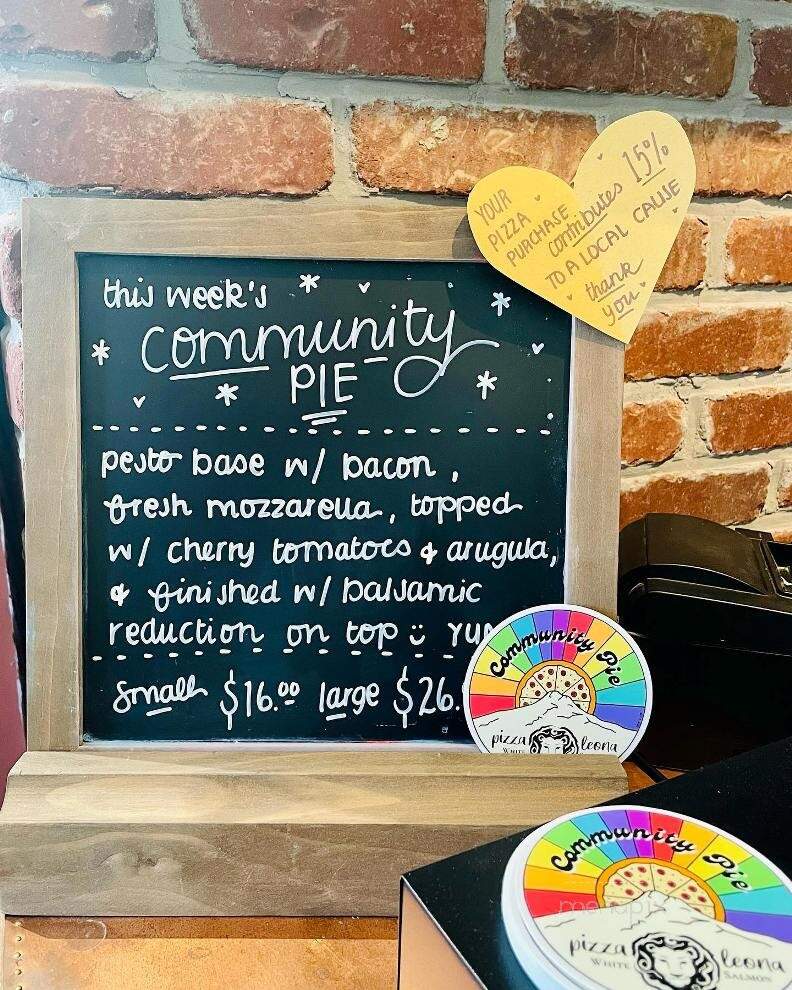 this week's
community
PIE
pesto base w/ bacon,
fresh mozzarella, topped
w/ cherry tomatoes & arugula,
& finished w/ balsamic
reduction on top
small $16.00 large $26.
YOUR
PIZZA
PURCHASE
contributes 15%
TO A LOCAL CAUSE
thank
you
Community Pie
pizza leona
WHITE
Community Pie
pizza leona
WHITE SALMON